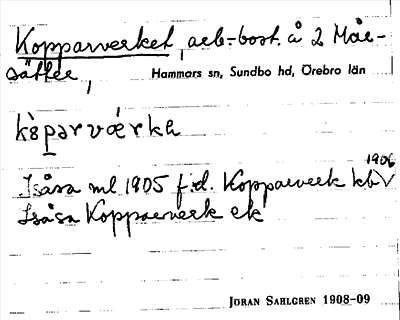 Kopparverket, arb.-bost. å 2 Mår-
sätter, Hammars sn, Sundbo hd, Örebro län
Isåsa ml 1905 f.d. Kopparverk kbV 1906
Isåsa Kopparverk ek
JÖRAN SAHLGREN 1908-09